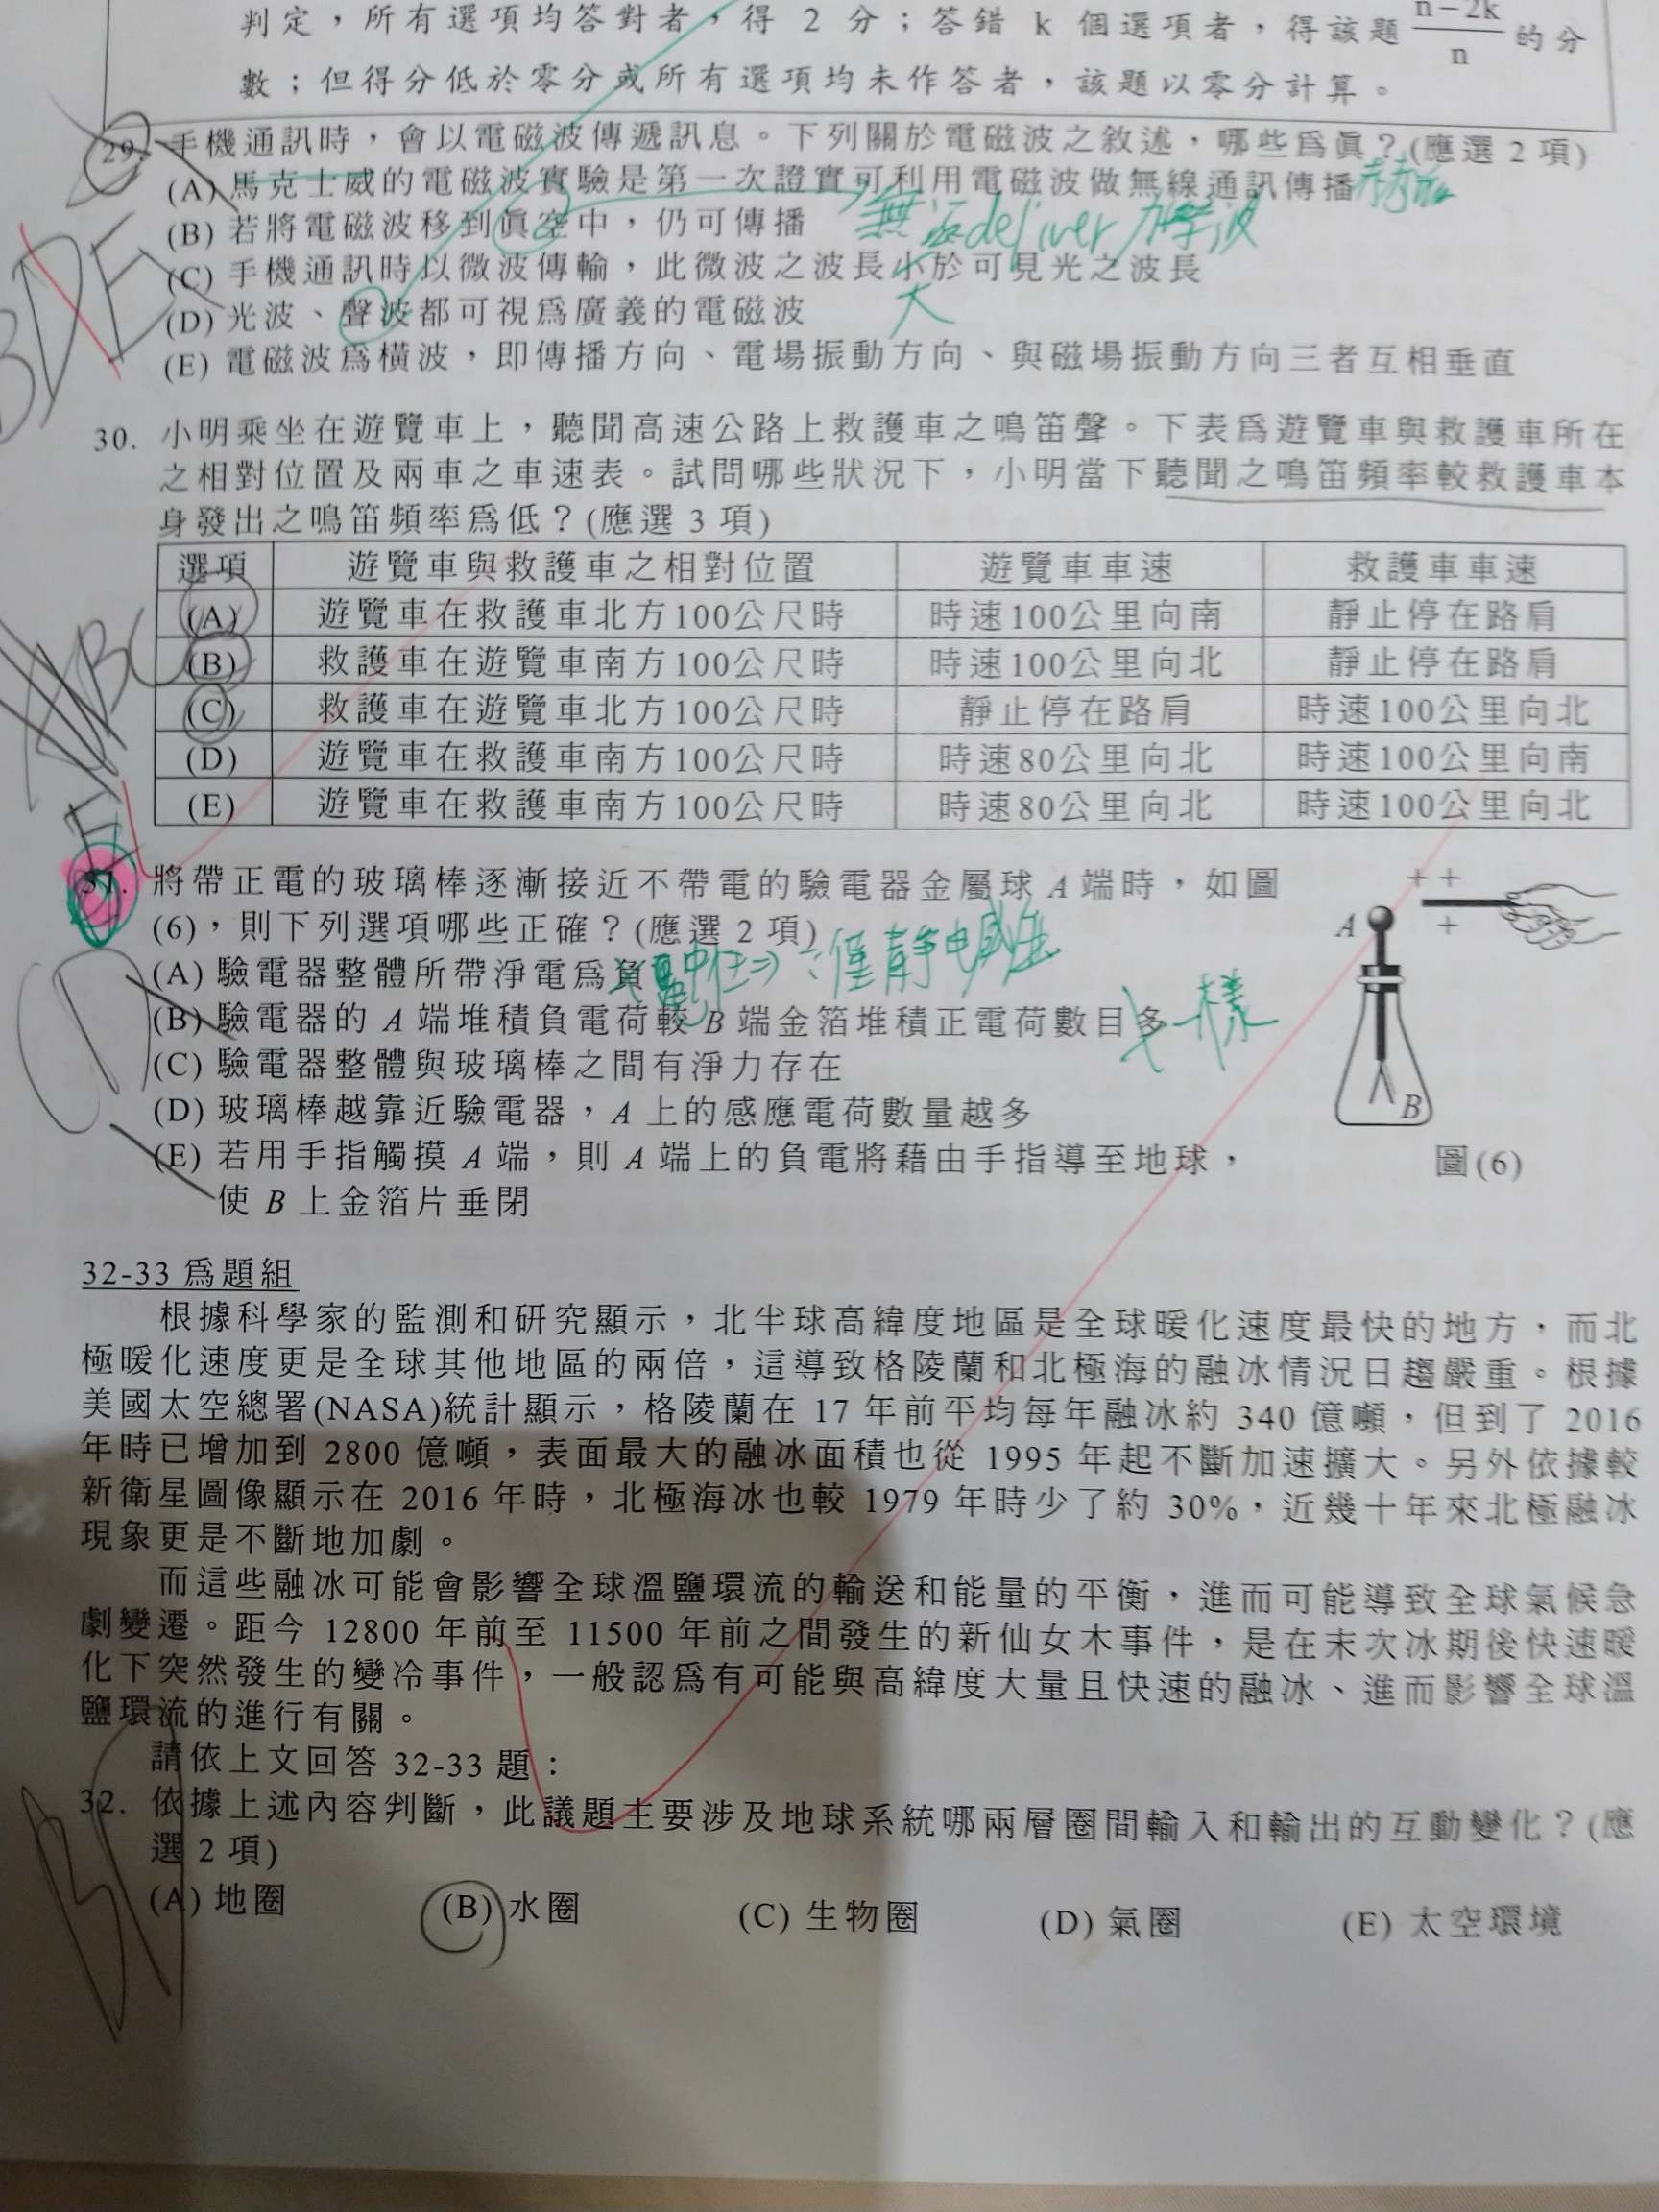 判定，所有選項均答對者，得 2 分；答錯 k 個選項者，得該題 n-2k/n 的分
數；但得分低於零分或所有選項均未作答者，該題以零分計算。
29. 手機通訊時，會以電磁波傳遞訊息。下列關於電磁波之敘述，哪些為真？(應選 2 項)
(A) 馬克士威的電磁波實驗是第一次證實可利用電磁波做無線通訊傳播
(B) 若將電磁波移到真空中，仍可傳播
deliver
(C) 手機通訊時以微波傳輸，此微波之波長小於可見光之波長
大
(D) 光波、聲波都可視為廣義的電磁波
(E) 電磁波為橫波，即傳播方向、電場振動方向、與磁場振動方向三者互相垂直
BDE
30. 小明乘坐在遊覽車上，聽聞高速公路上救護車之鳴笛聲。下表為遊覽車與救護車所在
之相對位置及兩車之車速表。試問哪些狀況下，小明當下聽聞之鳴笛頻率較救護車本
身發出之鳴笛頻率為低？(應選 3 項)
選項 遊覽車與救護車之相對位置 遊覽車車速 救護車車速
(A) 遊覽車在救護車北方100公尺時 時速100公里向南 靜止停在路肩
(B) 救護車在遊覽車南方100公尺時 時速100公里向北 靜止停在路肩
(C) 救護車在遊覽車北方100公尺時 靜止停在路肩 時速100公里向北
(D) 遊覽車在救護車南方100公尺時 時速80公里向北 時速100公里向南
(E) 遊覽車在救護車南方100公尺時 時速80公里向北 時速100公里向北
ABC
E
31. 將帶正電的玻璃棒逐漸接近不帶電的驗電器金屬球 A 端時，如圖
(6)，則下列選項哪些正確？(應選 2 項)
(A) 驗電器整體所帶淨電為負
(B) 驗電器的 A 端堆積負電荷較 B 端金箔堆積正電荷數目多
一樣
(C) 驗電器整體與玻璃棒之間有淨力存在
(D) 玻璃棒越靠近驗電器，A 上的感應電荷數量越多
(E) 若用手指觸摸 A 端，則 A 端上的負電將藉由手指導至地球，
使 B 上金箔片垂閉
+ +
+
A
B
圖(6)
32-33 為題組
根據科學家的監測和研究顯示，北半球高緯度地區是全球暖化速度最快的地方，而北
極暖化速度更是全球其他地區的兩倍，這導致格陵蘭和北極海的融冰情況日趨嚴重。根據
美國太空總署(NASA)統計顯示，格陵蘭在 17 年前平均每年融冰約 340 億噸，但到了 2016
年時已增加到 2800 億噸，表面最大的融冰面積也從 1995 年起不斷加速擴大。另外依據較
新衛星圖像顯示在 2016 年時，北極海冰也較 1979 年時少了約 30%，近幾十年來北極融冰
現象更是不斷地加劇。
而這些融冰可能會影響全球溫鹽環流的輸送和能量的平衡，進而可能導致全球氣候急
劇變遷。距今 12800 年前至 11500 年前之間發生的新仙女木事件，是在末次冰期後快速暖
化下突然發生的變冷事件，一般認為有可能與高緯度大量且快速的融冰、進而影響全球溫
鹽環流的進行有關。
請依上文回答 32-33 題：
32. 依據上述內容判斷，此議題主要涉及地球系統哪兩層圈間輸入和輸出的互動變化？(應
選 2 項)
(A) 地圈 (B) 水圈 (C) 生物圈 (D) 氣圈 (E) 太空環境